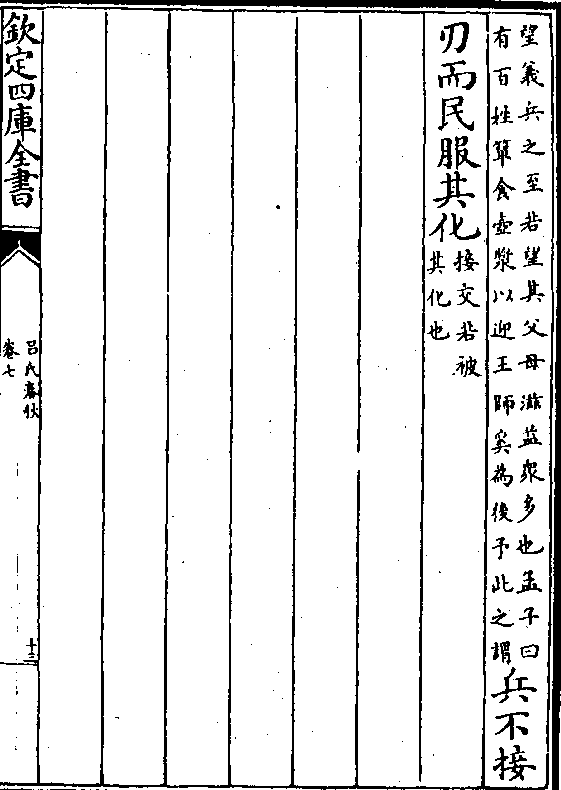 望義兵之至若望其父母滋益衆多也孟子曰
有百姓簞食壺漿以迎王師奚為後予此之謂
兵不接
刃而民服其化
接交若被
其化也
欽定四庫全書
呂氏春秋
卷七
十三